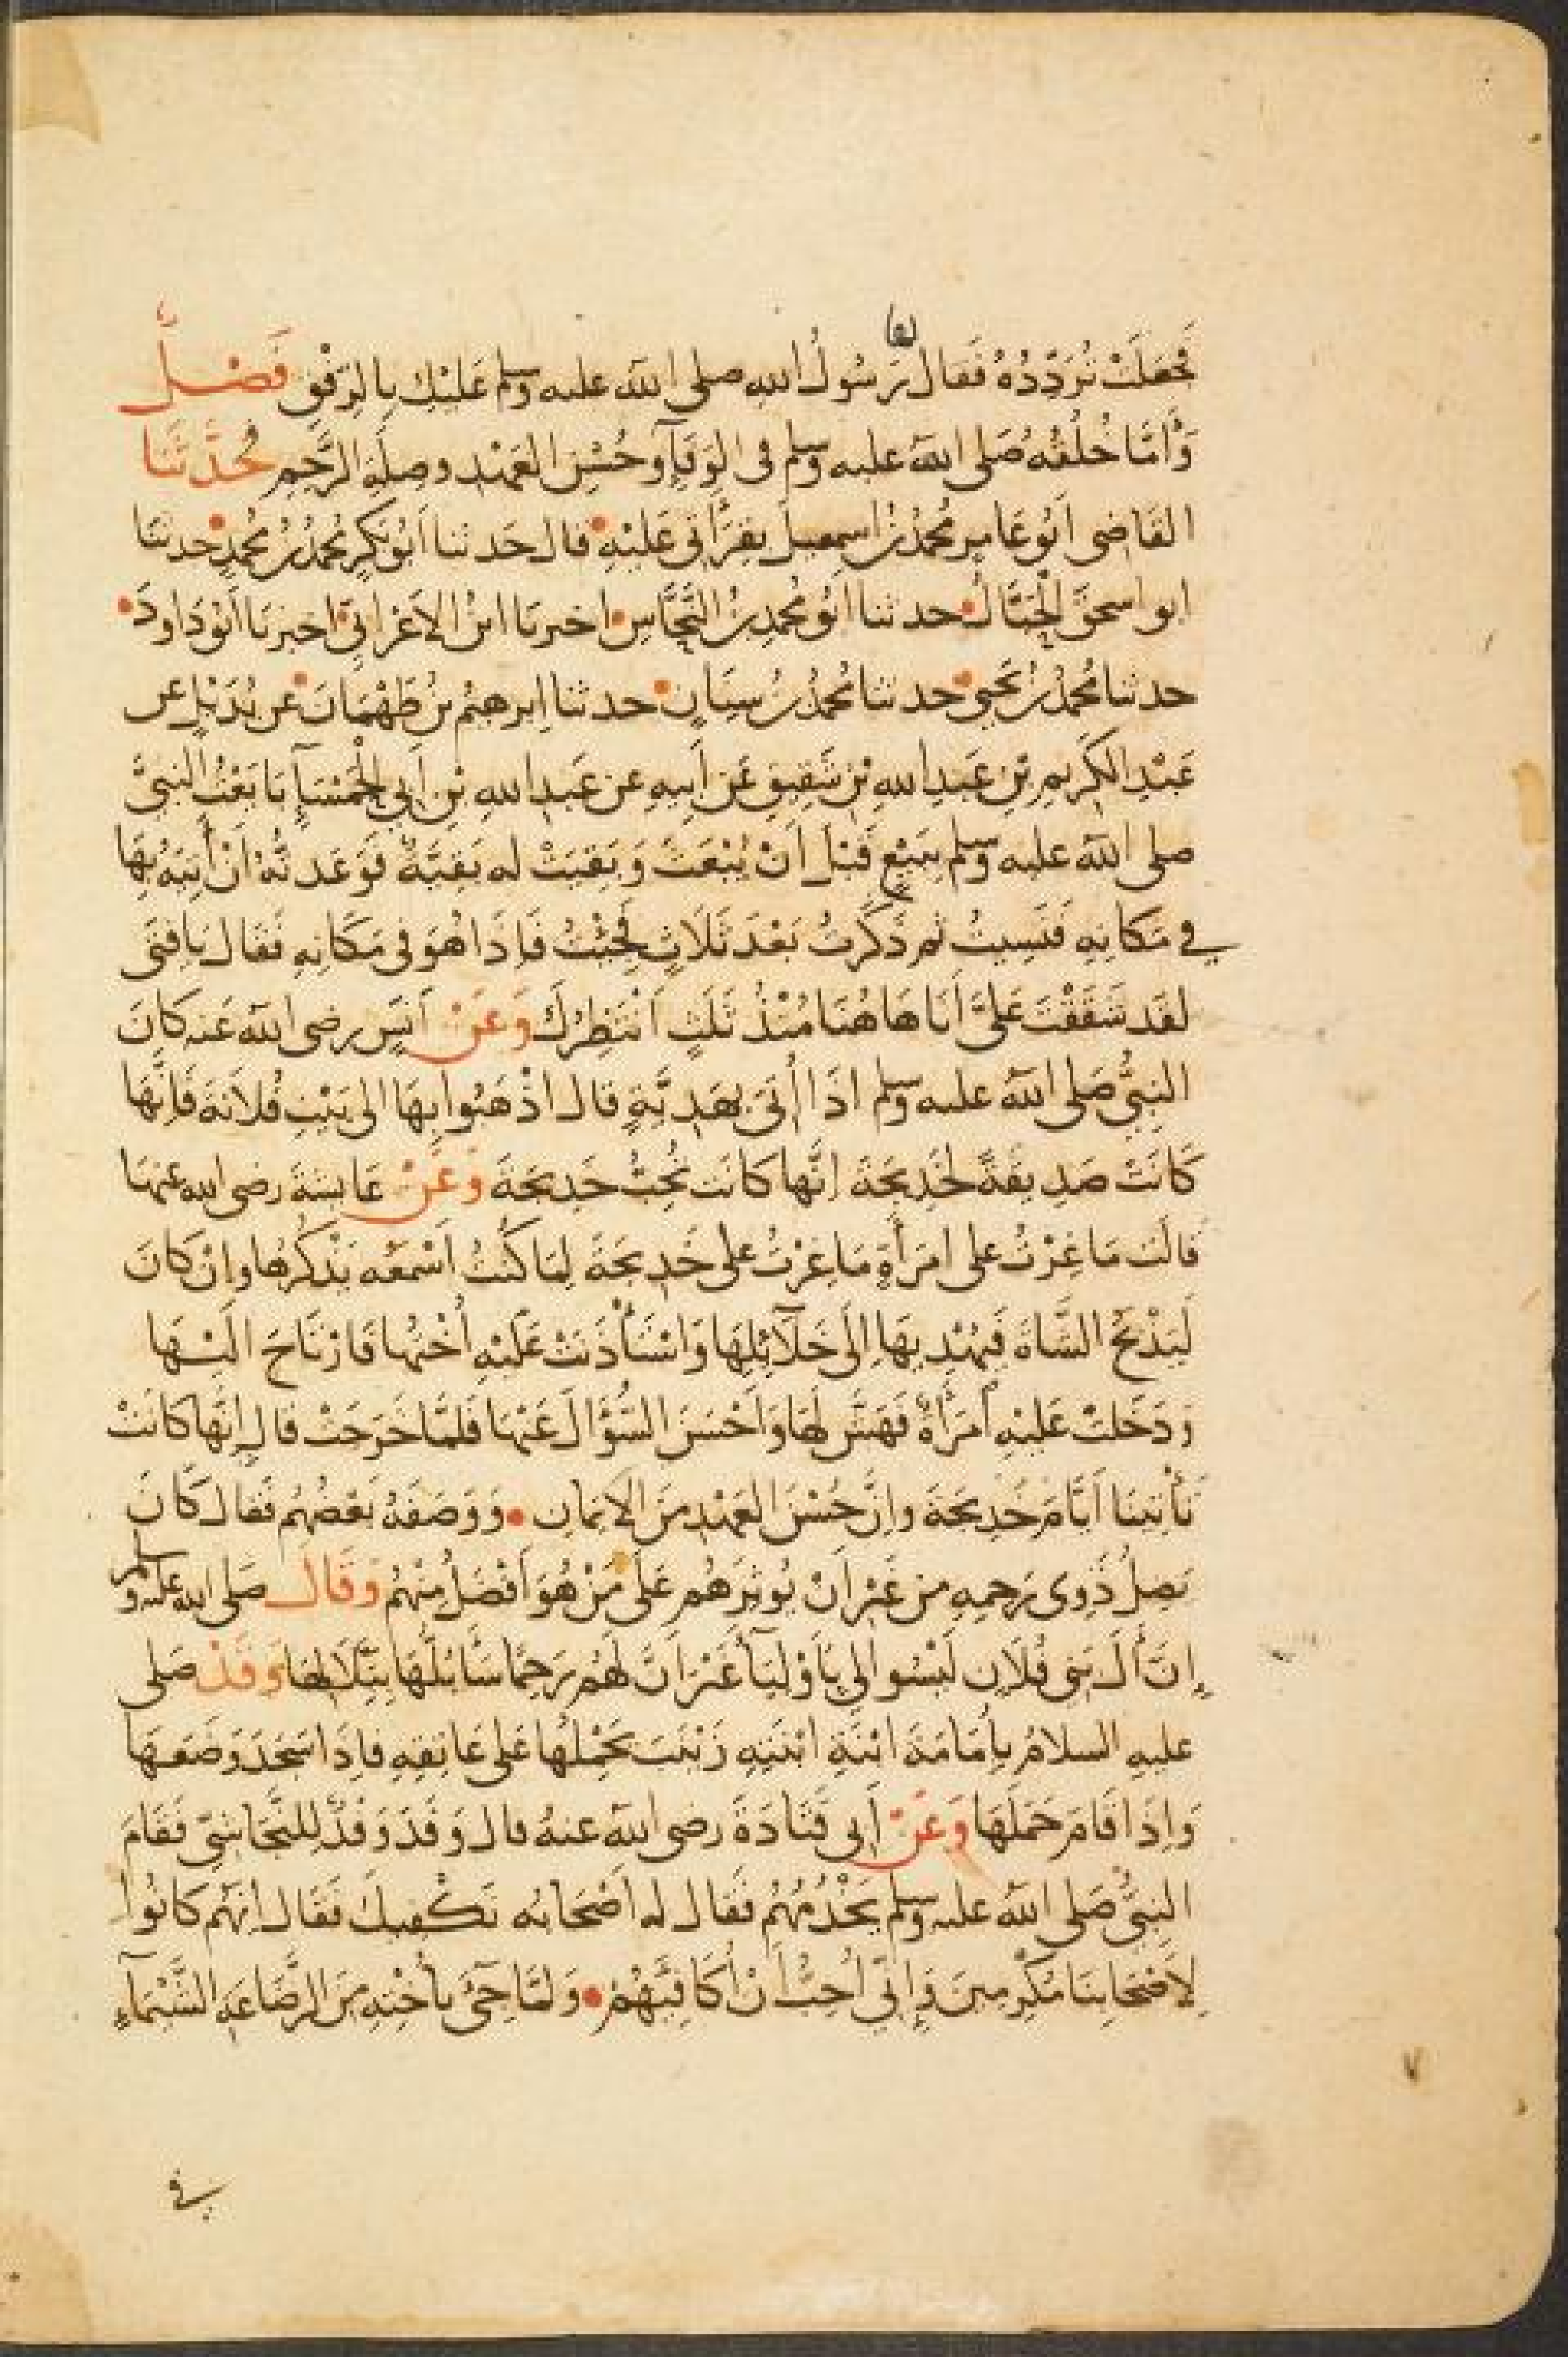 فَجَعَلَتْ تُرَدِّدُهُ فَقَال رَسُولُ الله صلى الله عليه وسلم عَلَيْكِ بِالرِّفْقِ فَصْلٌ
وَأَمَّا خُلُقُه صَلى الله عليه وسلم فى الوَفَآءِ وحُسْنِ العَهْدِ وصِلَةِ الرَّحِمِ حَدَّثَنَا
القَاضِى اَبُو عَامِرٍ مُحمدُ بْنُ اسمعيل بقِرَأَتى عَلَيْهِ قال حَدثنا اَبُو بَكرٍ مُحمدُ بنُ مُحمدٍ حدثنَا
ابو اسحقَ الْحَبَّالُ حدثنا اَبُو مُحمدِ بنُ النَّحَّاسِ اخبرنَا ابنُ الاَعْرَابِّى اخبرنَا اَبُو دَاودَ
حدثنا مُحمدُ بنُ يَحيى حدثنا مُحمدُ بنُ سِنَانٍ حدثنا اِبرهيمُ بنُ طَهْمَانَ عن بُدَيْلٍ عن
عَبْدِ الكَرِيمِ بْنِ عَبدِ الله بْنِ شَقِيقٍ عَن اَبيهِ عن عَبدِ الله بْنِ اَبِى الْحَمْسَآءِ بَايَعْتُ النبىَّ
صلى الله عليه وسلم بِبَيْعٍ قَبْلَ اَنْ يُبْعَثَ وَبَقِيَتْ له بَقِيَّةٌ فَوَعَدتُّهُ اَنْ اٰتِيَهُ بهَا
فى مَكَانِهِ فَنَسِيتُ ثم ذَكَرتُ بَعْدَ ثَلَاثٍ فَجِئْتُ فَاِذَا هُوَ فى مَكَانِهِ فَقَال يَا فَتَى
لقَد شَقَقْتَ عَلىَّ اَنَا هَا هُنَا مُنْذُ ثَلٰثٍ اَنْتَظِرُكَ وَعَنْ اَنَسٍ رضى الله عَنه كَانَ
النبِىُّ صَلى الله عليه وسلم اذَا اُتِىَ بِهَدِيَّةٍ قال اذْهَبُوا بِهَا الى بَيْتِ فُلَانَةَ فَاِنَّهَا
كَانَتْ صَدِيقَةً لِخَدِيجَةَ اِنَّهَا كَانَت تُحِبُّ خَدِيجَةَ وَعَنْ عَايشةَ رضى الله عنهَا
قالَت مَا غِرْتُ على امرَأَةٍ مَا غِرْتُ على خَدِيجَةَ لِمَا كُنْتُ اَسْمَعُه يَذْكُرُها واِنْ كَانَ
لَيَذْبَحُ الشَّاةَ فَيُهْدِيهَا اِلَى خَلَآئِلِهَا وَاسْتَأْذَنَتْ عَلَيْهِ اُخْتُهَا فَارْتَاحَ الَيْهَا
وَدَخَلتْ عَلَيْهِ امْرَأَةٌ فَهَشَّ لهَا وَاَحْسَنَ السُّؤَالَ عَنْهَا فَلمَّا خَرَجَتْ قال اِنَّهَا كَانَتْ
تَأْتِينَا اَيَّامَ خَدِيجَةَ واِنَّ حُسْنَ العَهْدِ مِنَ الاِيمَانِ وَوَصَفَهُ بَعْضُهُم فَقال كَانَ
يَصِلُ ذَوِى رَحِمِهِ مِن غَيْرِ اَنْ يُوثِرَهُم عَلَى مَنْ هُوَ اَفْضَلُ مِنْهُم وَقَال صَلى الله عليه وسلم
اِنَّ اٰلَ بَنِى فُلَانٍ لَيْسُوا لِى بِأَوْلِيَآءَ غَيْرَ اَنَّ لَهُم رَحِمًا سَأَبُلُّهَا بِبِلَالِهَا وَقَدْ صَلى
عليهِ السلامُ بِأُمَامَةَ ابْنَةِ ابْنَتِهِ زَيْنَبَ يَحْمِلُهَا عَلى عَاتِقِهِ فاِذَا سَجَدَ وَضَعَهَا
وَاِذَا قَامَ حَمَلَهَا وَعَنْ اَبى قَتَادَةَ رضى الله عنهُ قال وَفَدَ وَفْدٌ لِلنَّجَاشِىِّ فَقَامَ
النبِىُّ صَلى الله عليه وسلم يَخْدُمُهُم فَقال له اَصْحَابُه نَكْفِيكَ فَقَال اِنَّهُم كَانُوا
لِاَصْحَابِنَا مُكْرِمِينَ وَاِنِّى اُحِبُّ اَنْ اُكَافِئَهُمْ وَلمَّا جِىءَ بأُخْتِهِ مِنَ الرَّضَاعَةِ الشَّيْمَآءِ
فى